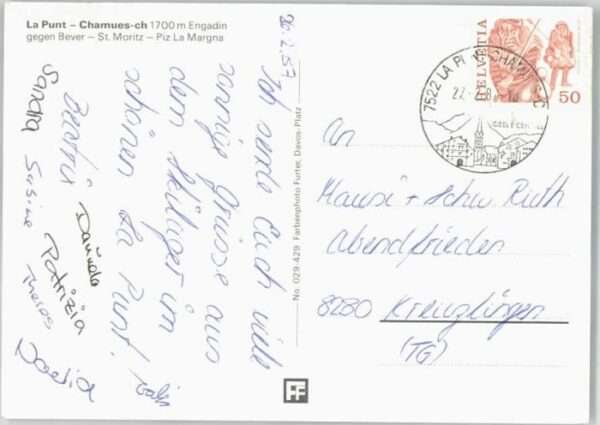 La Punt – Chamues-ch 1700 m Engadin
gegen Bever – St. Moritz – Piz La Margna
20.2.57
Ich sende Euch viele
sonnige Grüsse aus
dem Heiliger im
schönen La Punt!
Beatrix Daniela
Sandra Patrizia
David
No. 029-429 Farbenphoto Furter, Davos-Platz
FF
7522 LA PUNT-CHAMUES-CH
HELVETIA
50
An
Mausi + Schw. Ruth
Abendfrieden
8280 Kreuzlingen
(TG)